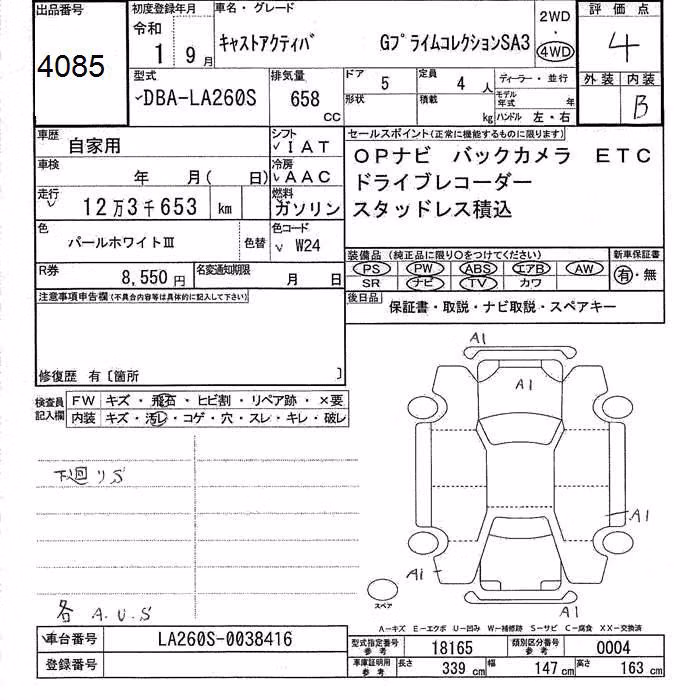 出品番号
4085
初度登録年月
令和
1 9月
車名・グレード
キャストアクティバ GプライムコレクションSA3
2WD
・
4WD
評価点
4
外装 内装
B
型式
DBA-LA260S
排気量
658 CC
ドア 5
定員 4 人
ディーラー・並行
形状
積載 kg
モデル年式 年
ハンドル 左・右
車歴 自家用
シフト IAT
車検 年 月( 日)
冷房 AAC
走行 12万3千653 km
燃料 ガソリン
色 パールホワイトⅢ
色替
色コード W24
R券 8,550円
名変通知期限 月 日
セールスポイント(正常に機能するものに限ります)
OPナビ バックカメラ ETC
ドライブレコーダー
スタッドレス積込
装備品(純正品に限り○をつけてください)
新車保証書
PS PW ABS エアB AW
有・無
SR ナビ TV カワ
後日品 保証書・取説・ナビ取説・スペアキー
注意事項申告欄(不具合内容等は具体的に記入して下さい)
修復歴 有〔箇所 〕
検査員記入欄
FW キズ・飛石・ヒビ割・リペア跡・×要
内装 キズ・汚レ・コゲ・穴・スレ・キレ・破レ
下廻りS
各 A.U.S
A1
A1
A1
A1
A1
スペア
A-キズ E-エクボ U-凹み W-補修跡 S-サビ C-腐食 XX-交換済
車台番号 LA260S-0038416
登録番号
型式指定番号参考 18165
類別区分番号参考 0004
車庫証明用参考 長さ 339cm 幅 147cm 高さ 163cm